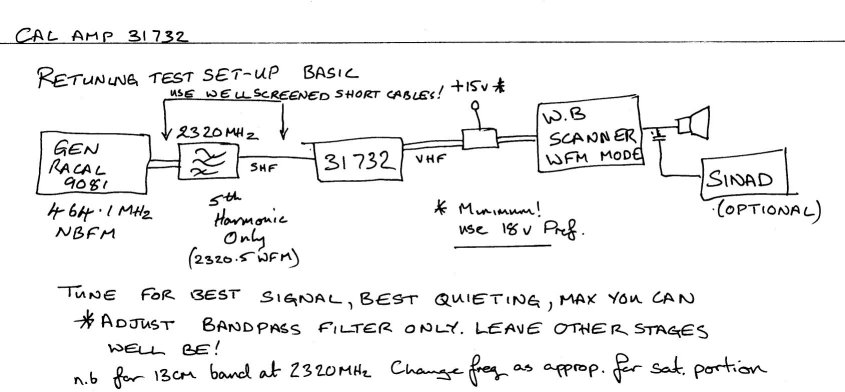 CAL AMP 31732
RETUNING TEST SET-UP BASIC
USE WELL SCREENED SHORT CABLES!
+15V *
2320MHz
GEN
RACAL
9081
SHF
31732
VHF
W.B
SCANNER
WFM MODE
SINAD
(OPTIONAL)
464.1MHz
NBFM
5th
Harmonic
Only
(2320.5 WFM)
* Minimum!
use 18v Pref.
TUNE FOR BEST SIGNAL, BEST QUIETING, MAX YOU CAN
* ADJUST BANDPASS FILTER ONLY. LEAVE OTHER STAGES
WELL BE!
n.b for 13cm band at 2320MHz Change freq as approp. for sat. portion